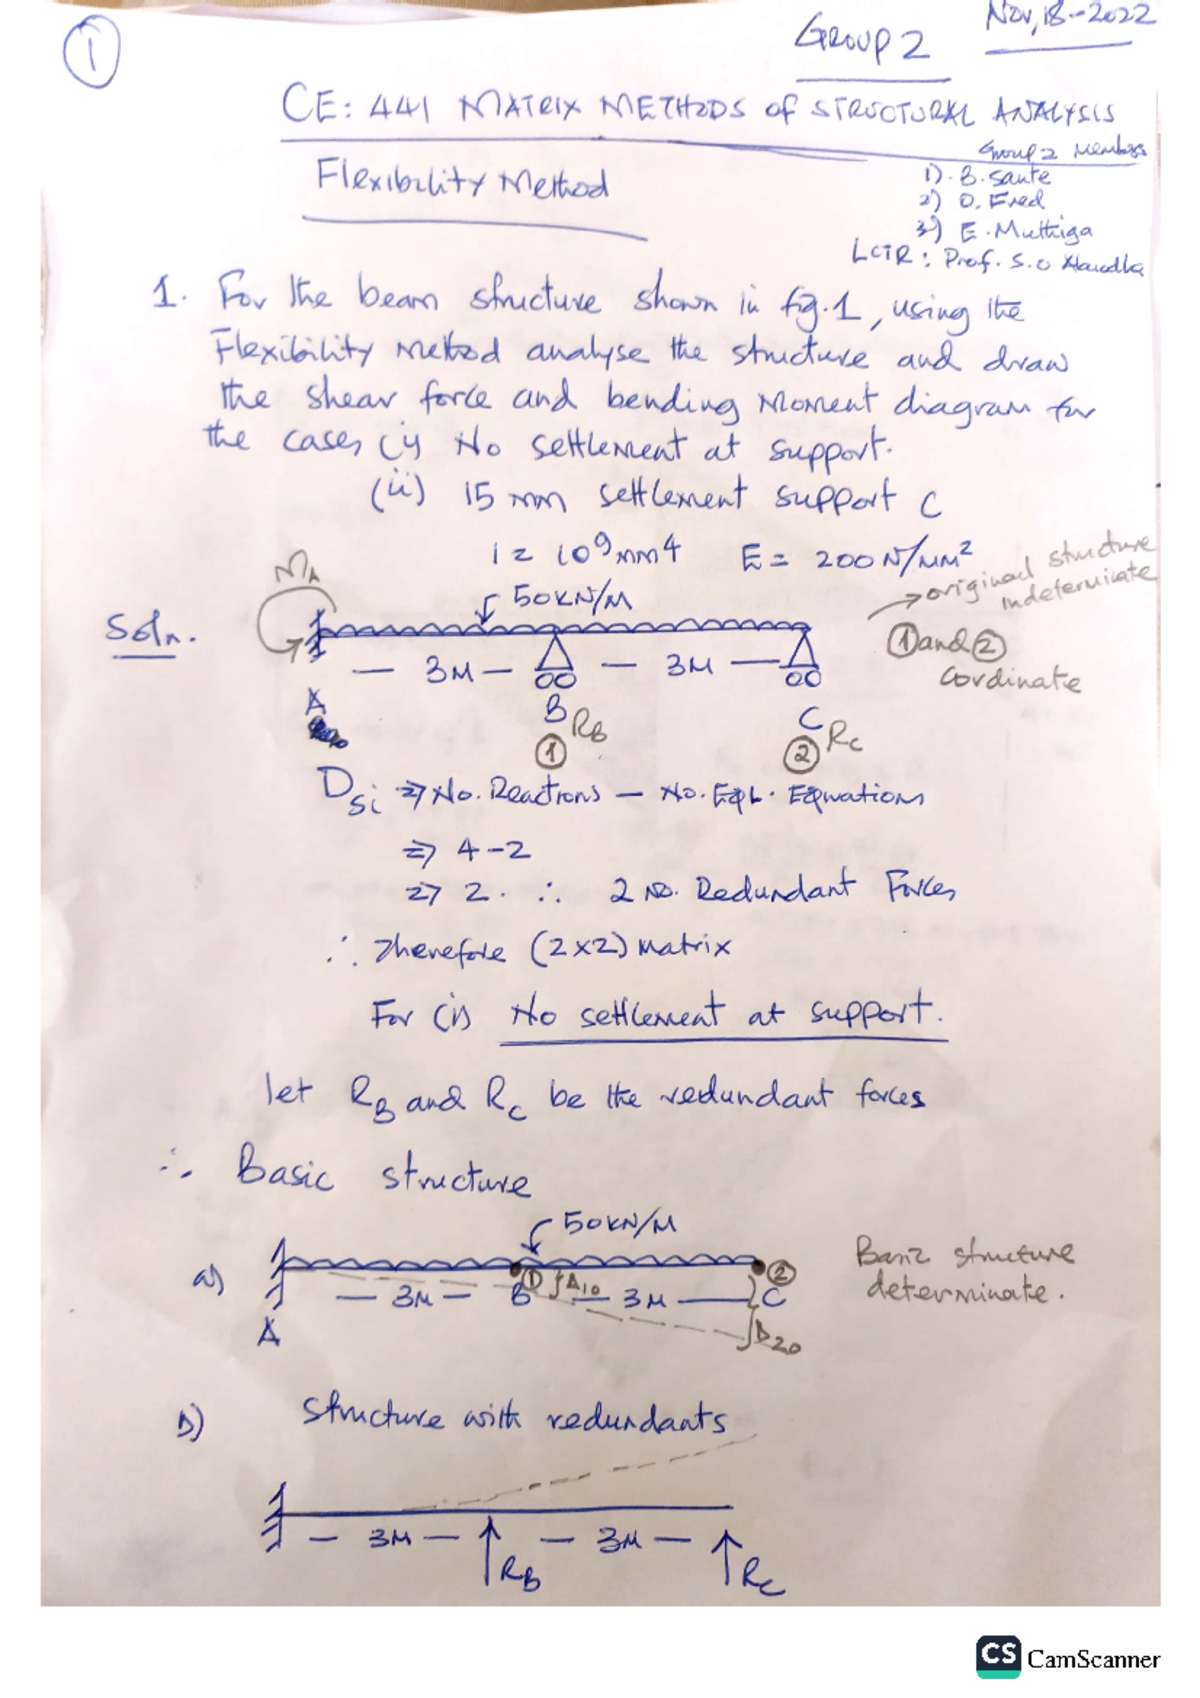 1
GROUP 2
Nov, 18-2022
CE: 441 MATRIX METHODS OF STRUCTURAL ANALYSIS
Flexibility Method
Group 2 Members
1). B. Sante
2) O. Fred
3) E. Muthiga
LCTR: Prof. S.O
1. For the beam structure shown in fig.1, using the
Flexibility Method analyse the structure and draw
the shear force and bending Moment diagram for
the cases (i) No settlement at support.
(ii) 15 mm settlement support C
I = 10⁹mm4 E = 200N/mm²
original structure
indeterminate
MA
50KN/M
Soln.
1 and 2
Cordinate
3M 3M
A B RB C RC
1 2
Dsi => No. Reactions - No. Eql. Equations
=> 4-2
=> 2. ∴ 2 No. Redundant Forces
∴ Therefore (2x2) Matrix
For (i) No settlement at support.
let RB and RC be the redundant forces
∴ Basic structure
50KN/M
Basic structure
determinate.
a)
1 Δ10 2
3M B 3M C
A
Δ20
b) structure with redundants
3M 3M
RB RC
CS CamScanner